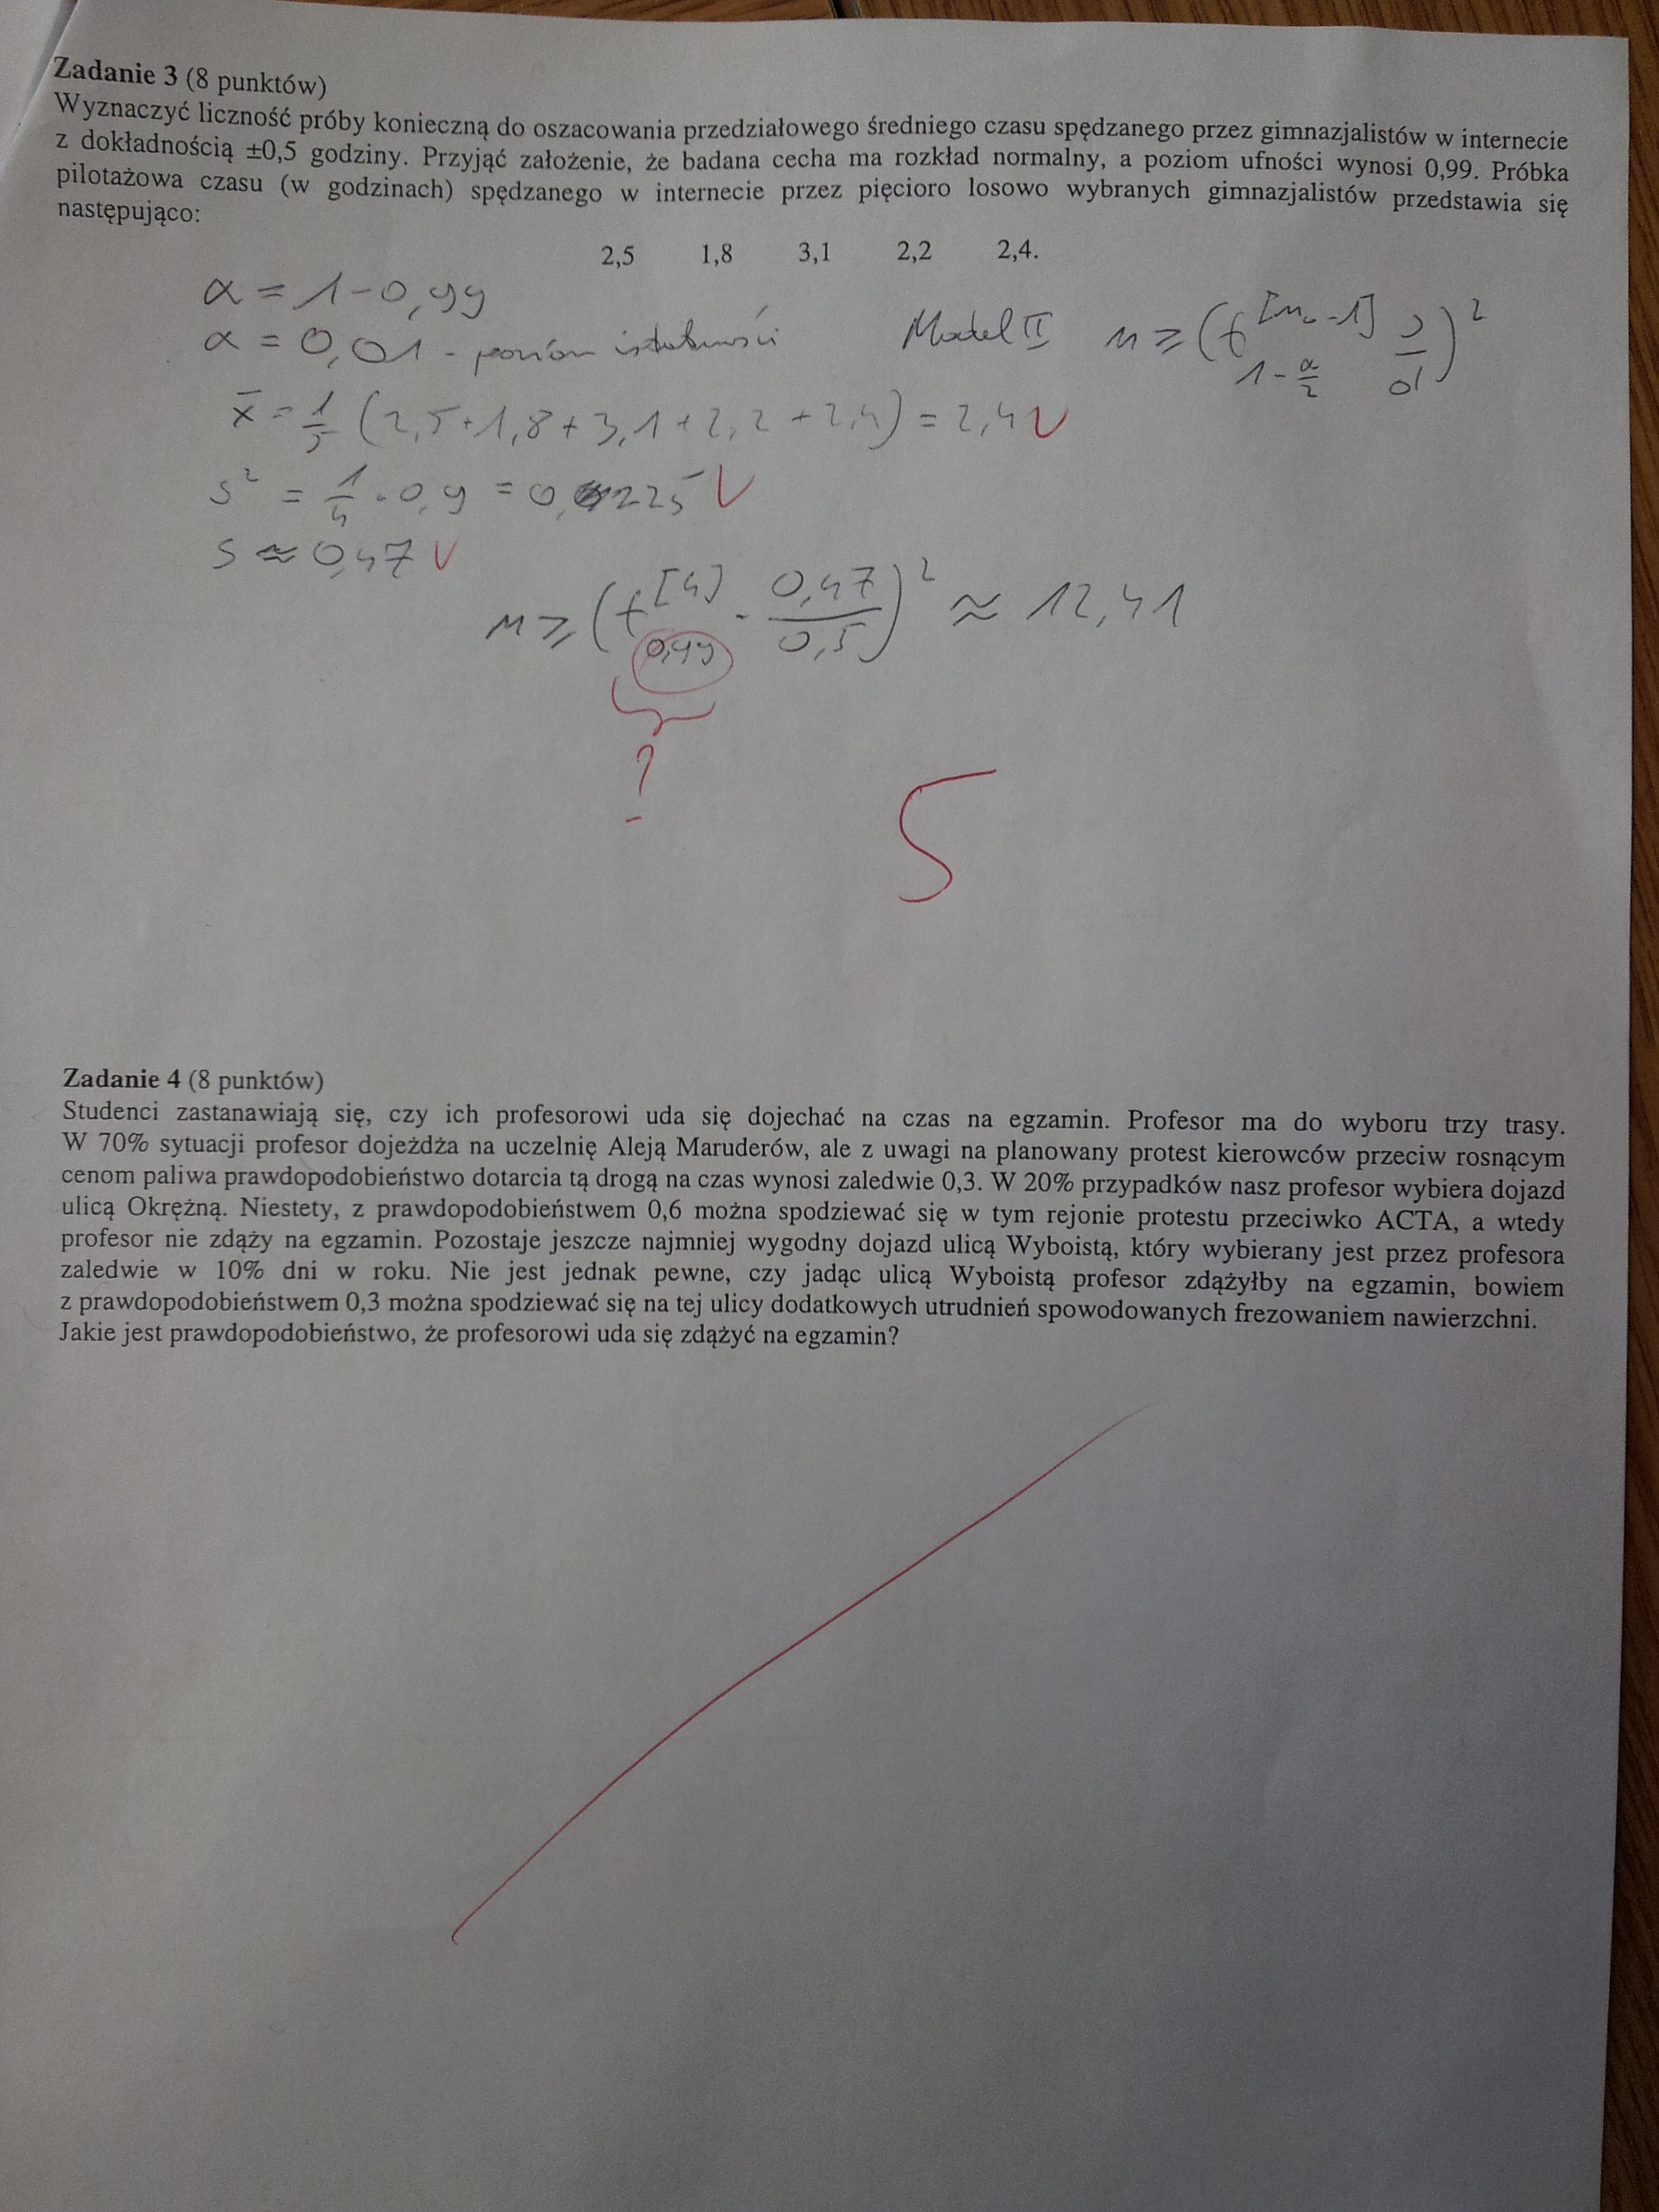 Zadanie 3 (8 punktów)
Wyznaczyć liczność próby konieczną do oszacowania przedziałowego średniego czasu spędzanego przez gimnazjalistów w internecie
z dokładnością ±0,5 godziny. Przyjąć założenie, że badana cecha ma rozkład normalny, a poziom ufności wynosi 0,99. Próbka
pilotażowa czasu (w godzinach) spędzanego w internecie przez pięcioro losowo wybranych gimnazjalistów przedstawia się
następująco:
2,5 1,8 3,1 2,2 2,4.
α = 1-0,99
α = 0,01 - poziom istotności Model II n ≥ (t^[n₀-1]_{1-α/2} s/d)²
x̄ = 1/5 (2,5+1,8+3,1+2,2+2,4) = 2,4 V
s² = 1/4 · 0,9 = 0,225 V
s ≈ 0,47 V
n ≥ (t^[4]_{0,99} · 0,47/0,5)² ≈ 12,41
?
5
Zadanie 4 (8 punktów)
Studenci zastanawiają się, czy ich profesorowi uda się dojechać na czas na egzamin. Profesor ma do wyboru trzy trasy.
W 70% sytuacji profesor dojeżdża na uczelnię Aleją Maruderów, ale z uwagi na planowany protest kierowców przeciw rosnącym
cenom paliwa prawdopodobieństwo dotarcia tą drogą na czas wynosi zaledwie 0,3. W 20% przypadków nasz profesor wybiera dojazd
ulicą Okrężną. Niestety, z prawdopodobieństwem 0,6 można spodziewać się w tym rejonie protestu przeciwko ACTA, a wtedy
profesor nie zdąży na egzamin. Pozostaje jeszcze najmniej wygodny dojazd ulicą Wyboistą, który wybierany jest przez profesora
zaledwie w 10% dni w roku. Nie jest jednak pewne, czy jadąc ulicą Wyboistą profesor zdążyłby na egzamin, bowiem
z prawdopodobieństwem 0,3 można spodziewać się na tej ulicy dodatkowych utrudnień spowodowanych frezowaniem nawierzchni.
Jakie jest prawdopodobieństwo, że profesorowi uda się zdążyć na egzamin?